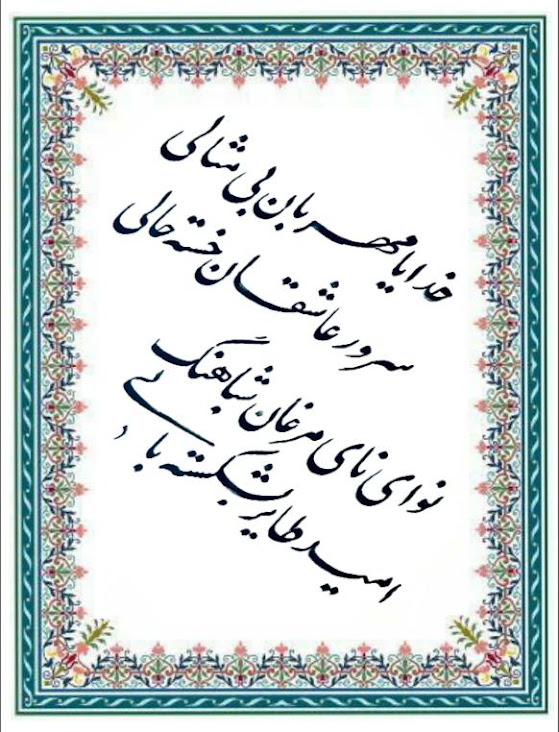 خدایا مهربان بی مثالی
سرور عاشقان خسته حالی
نوای نای مرغان شباهنگ
امید طایر بشکسته بالی